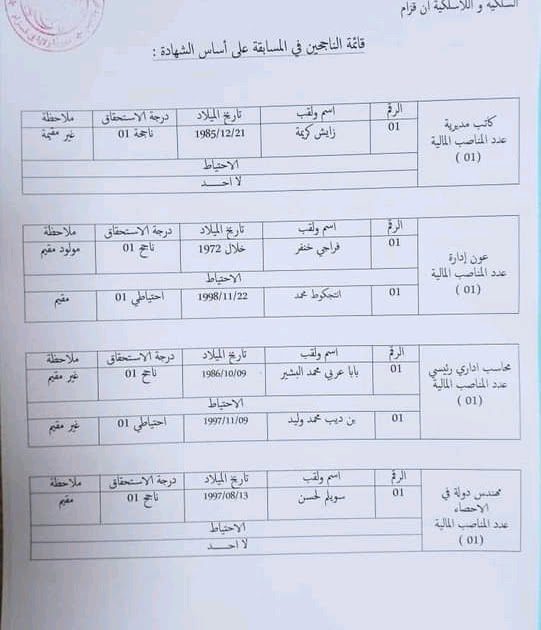 السلكية و اللاسلكية ان قزام
قائمة الناجحين في المسابقة على أساس الشهادة :
كاتب مديرية
عدد المناصب المالية
( 01 )
الرقم اسم ولقب تاريخ الميلاد درجة الاستحقاق ملاحظة
01 زايش كريمة 1985/12/21 ناجحة 01 غير مقيمة
الاحتياط
لا احد
عون إدارة
عدد المناصب المالية
( 01 )
الرقم اسم ولقب تاريخ الميلاد درجة الاستحقاق ملاحظة
01 فراحي خنفر خلال 1972 ناجح 01 مولود مقيم
الاحتياط
01 انتجكوط محمد 1998/11/22 احتياطي 01 مقيم
محاسب اداري رئيسي
عدد المناصب المالية
( 01 )
الرقم اسم ولقب تاريخ الميلاد درجة الاستحقاق ملاحظة
01 بابا عربي محمد البشير 1986/10/09 ناجح 01 غير مقيم
الاحتياط
01 بن ديب محمد وليد 1997/11/09 احتياطي 01 غير مقيم
مهندس دولة في
الاحصاء
عدد المناصب المالية
( 01 )
الرقم اسم ولقب تاريخ الميلاد درجة الاستحقاق ملاحظة
01 سويلم لحسن 1997/08/13 ناجح 01 مقيم
الاحتياط
لا احد